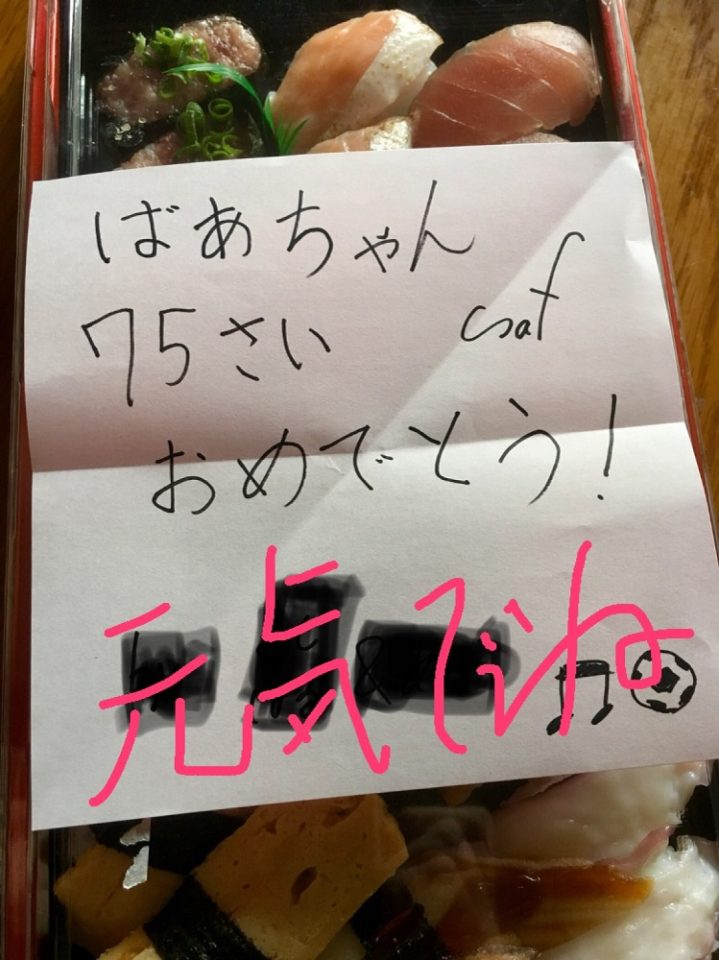 ばあちゃん
75さい
おめでとう!
元気でね